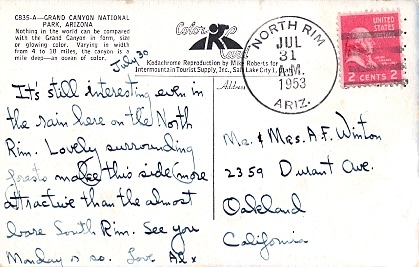 C835-A—GRAND CANYON NATIONAL
PARK, ARIZONA
Nothing in the world can be compared
with the Grand Canyon in form, size
or glowing color. Varying in width
from 4 to 18 miles, the canyon is a
mile deep—an ocean of color.
Kodachrome Reproduction by Mike Roberts for
Intermountain Tourist Supply, Inc., Salt Lake City 1,
July 30
It's still interesting even in
the rain here on the North
Rim. Lovely surrounding
make this side more
attractive than the almost
bare South Rim. See you
Monday or so. Love
Address
NORTH RIM
JUL
31
A.M.
1953
ARIZ.
UNITED
STATES
2 CENTS 2
Mr. & Mrs. A.F. Winton
2359 Durant Ave.
Oakland
California